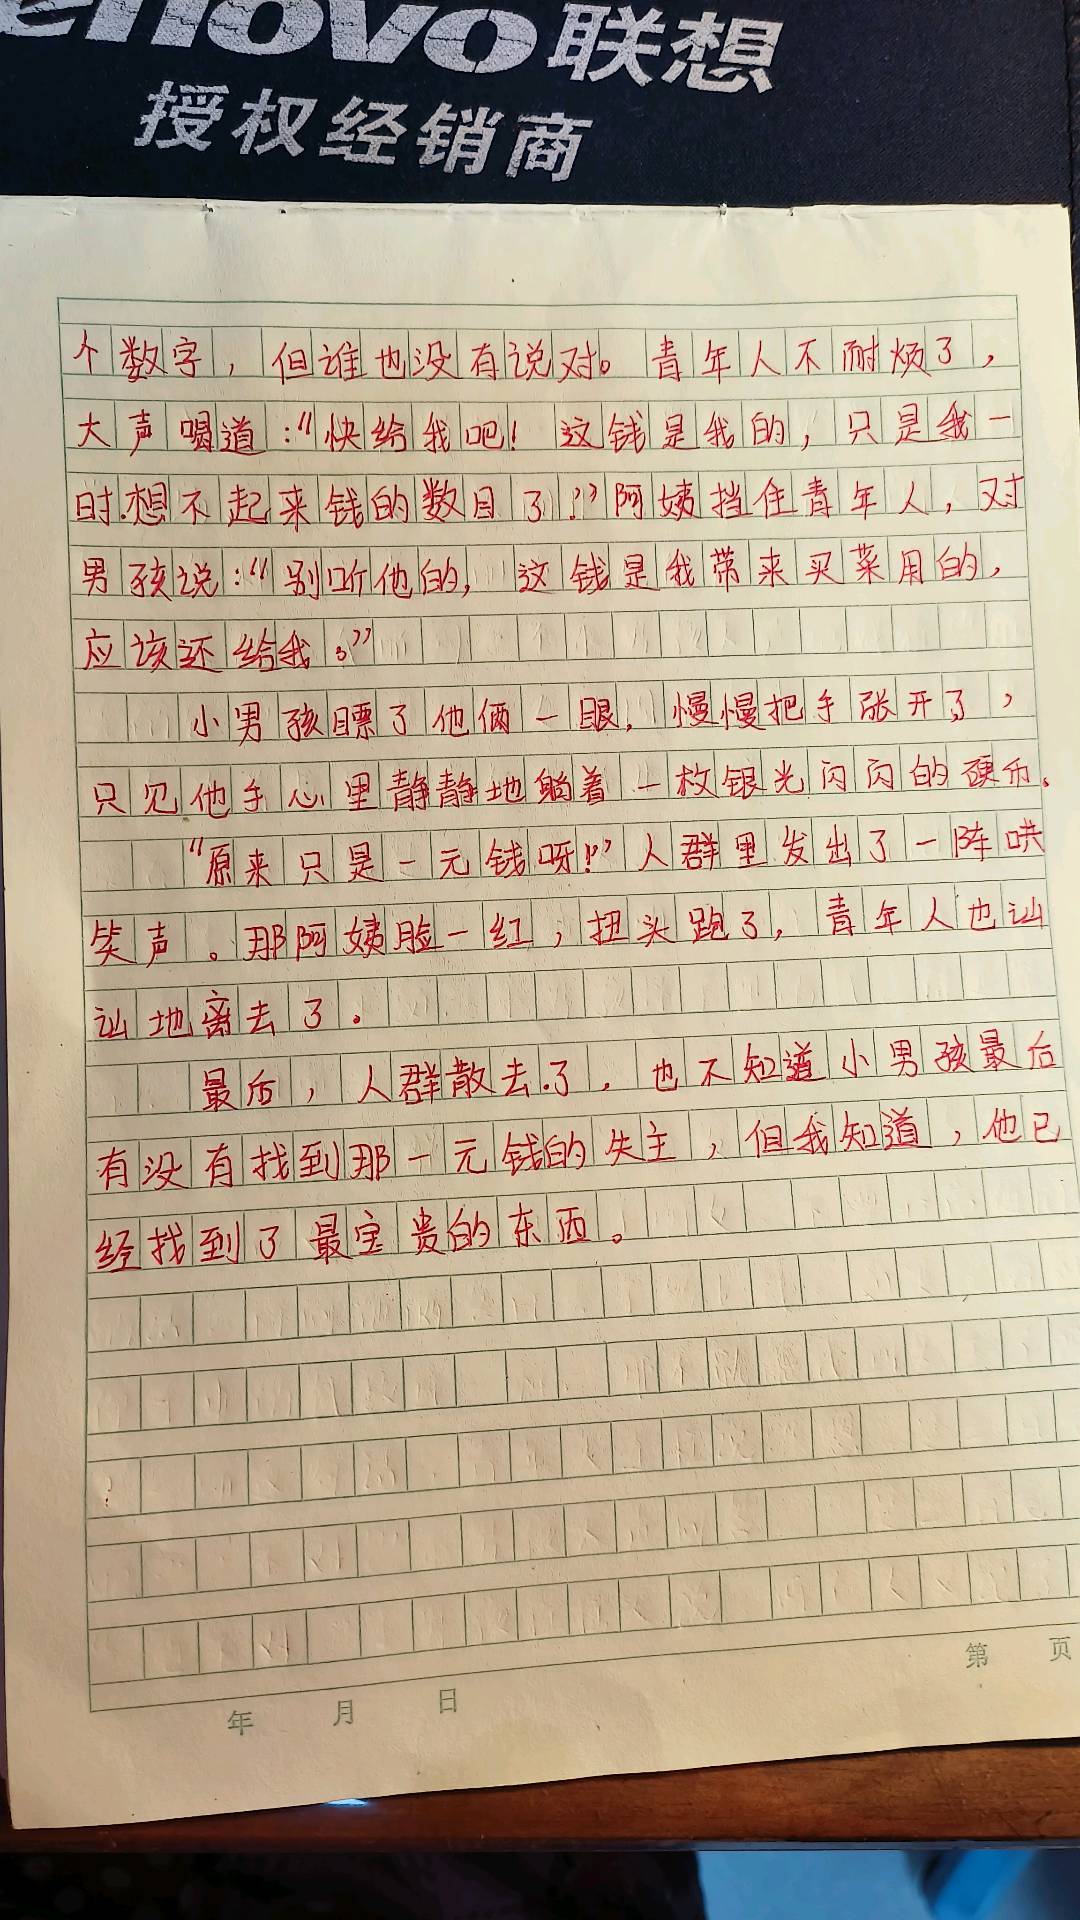 enovo联想
授权经销商
个数字，但谁也没有说对。青年人不耐烦了，
大声喝道：“快给我吧！这钱是我的，只是我一
时想不起来钱的数目了！”阿姨挡住青年人，对
男孩说：“别听他的，这钱是我带来买菜用的，
应该还给我。”
小男孩瞟了他俩一眼，慢慢把手张开了，
只见他手心里静静地躺着一枚银光闪闪的硬币。
“原来只是一元钱呀！”人群里发出了一阵哄
笑声。那阿姨脸一红，扭头跑了，青年人也讪
讪地离去了。
最后，人群散去了，也不知道小男孩最后
有没有找到那一元钱的失主，但我知道，他已
经找到了最宝贵的东西。
第 页
年 月 日